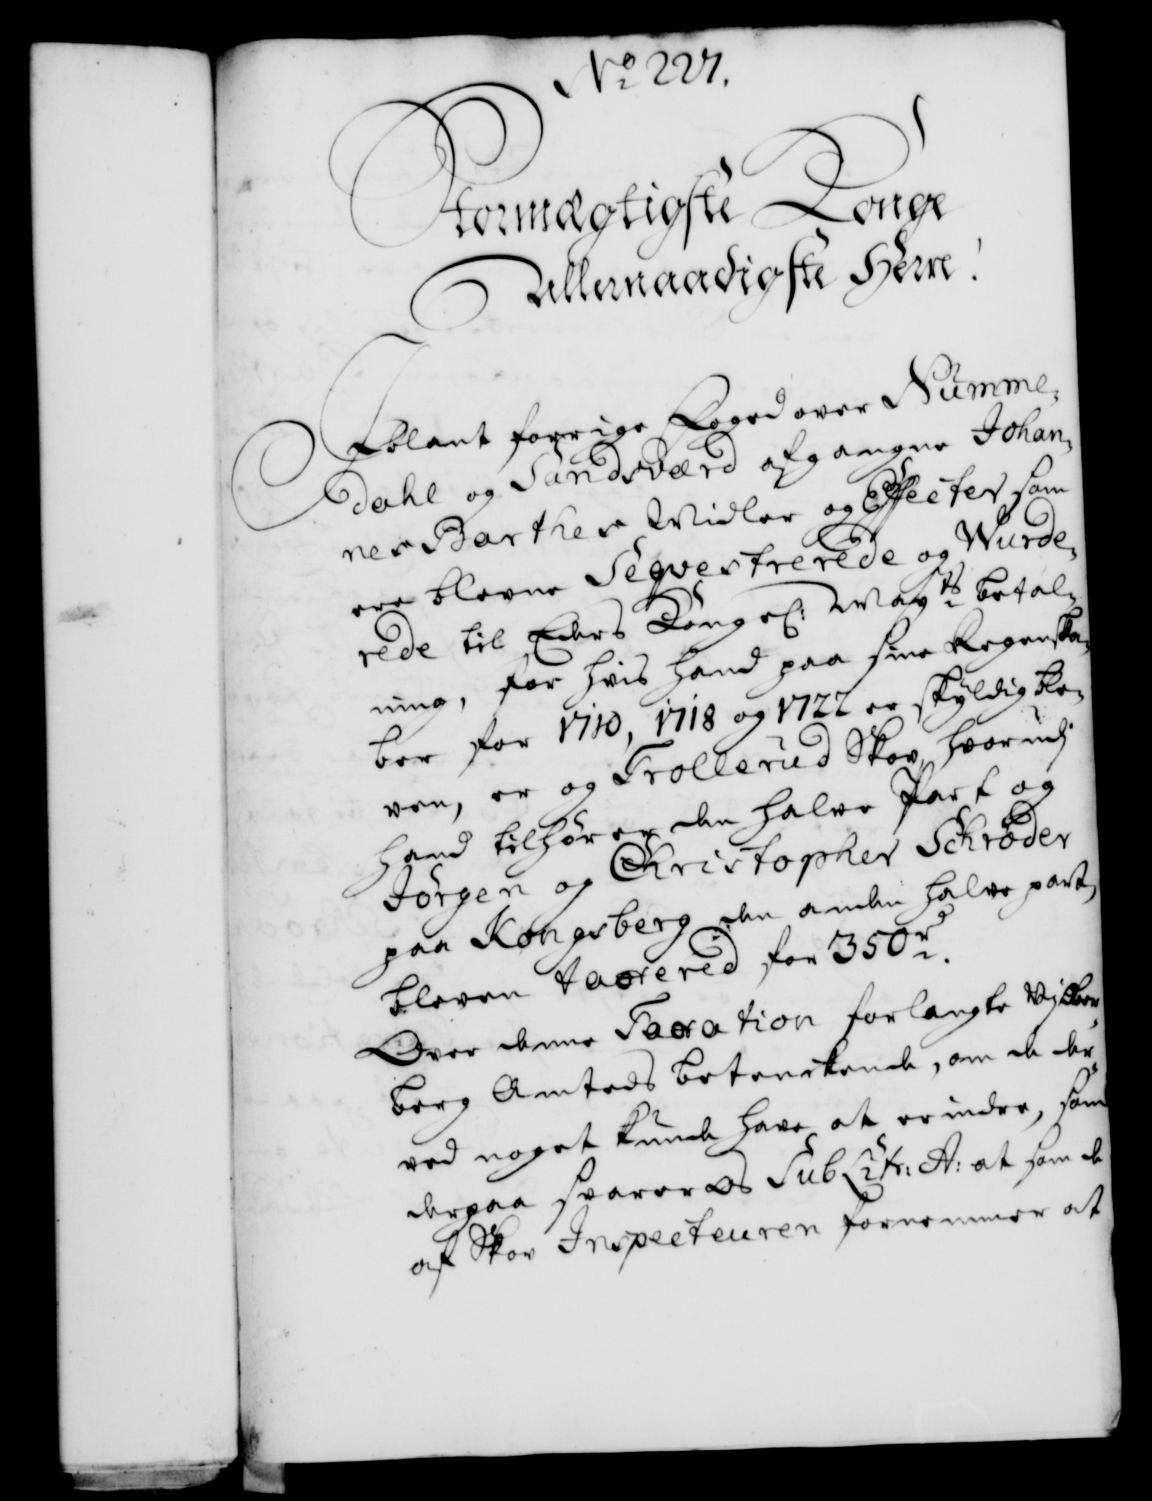 No 227.
Stormægtigste Konge
Allernaadigste Herre!
Iblant forrige Foged over Numme-
dahl og Sandsværd afgangne Johan-
nes Barthes Midler og Effecter som
ere blevne Seqvestrerede og Wurde-
rede til Eders Kongel: Mayts betal-
ning, for hvis hand paa sine Regenska-
ber for 1710, 1718 og 1722 er skÿldig ble-
ven, er og Trollerud Skov, hvorudj
hand tilhörer den halve Part og
Jörgen og Christopher Schrøder
paa Kongsberg den anden halve part,
bleven taxered for 350 rd.
Over denne Taxation forlangte Vj
berg Amteds betenckende, om de der-
ved noget kunde have at erindre, som
derpaa svarer os Sub Litr: A: at som de
af Skov Inspecteuren fornemmer at